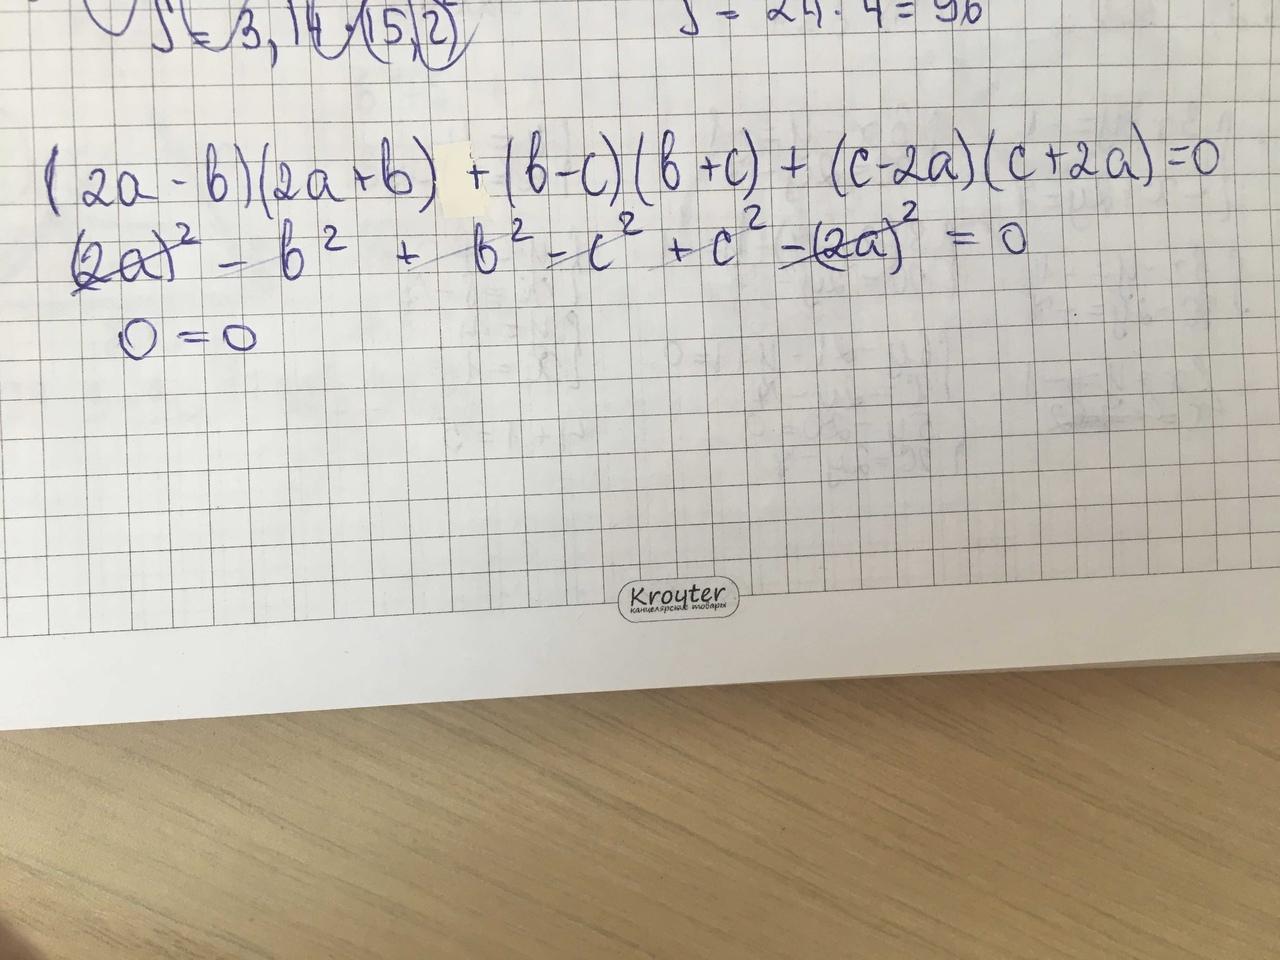 S = 3,14 · (15,2)²
S = 24 · 4 = 96
(2a - b)(2a + b) + (b - c)(b + c) + (c - 2a)(c + 2a) = 0
(2a)² - b² + b² - c² + c² - (2a)² = 0
0 = 0
Krouter
канцелярские товары